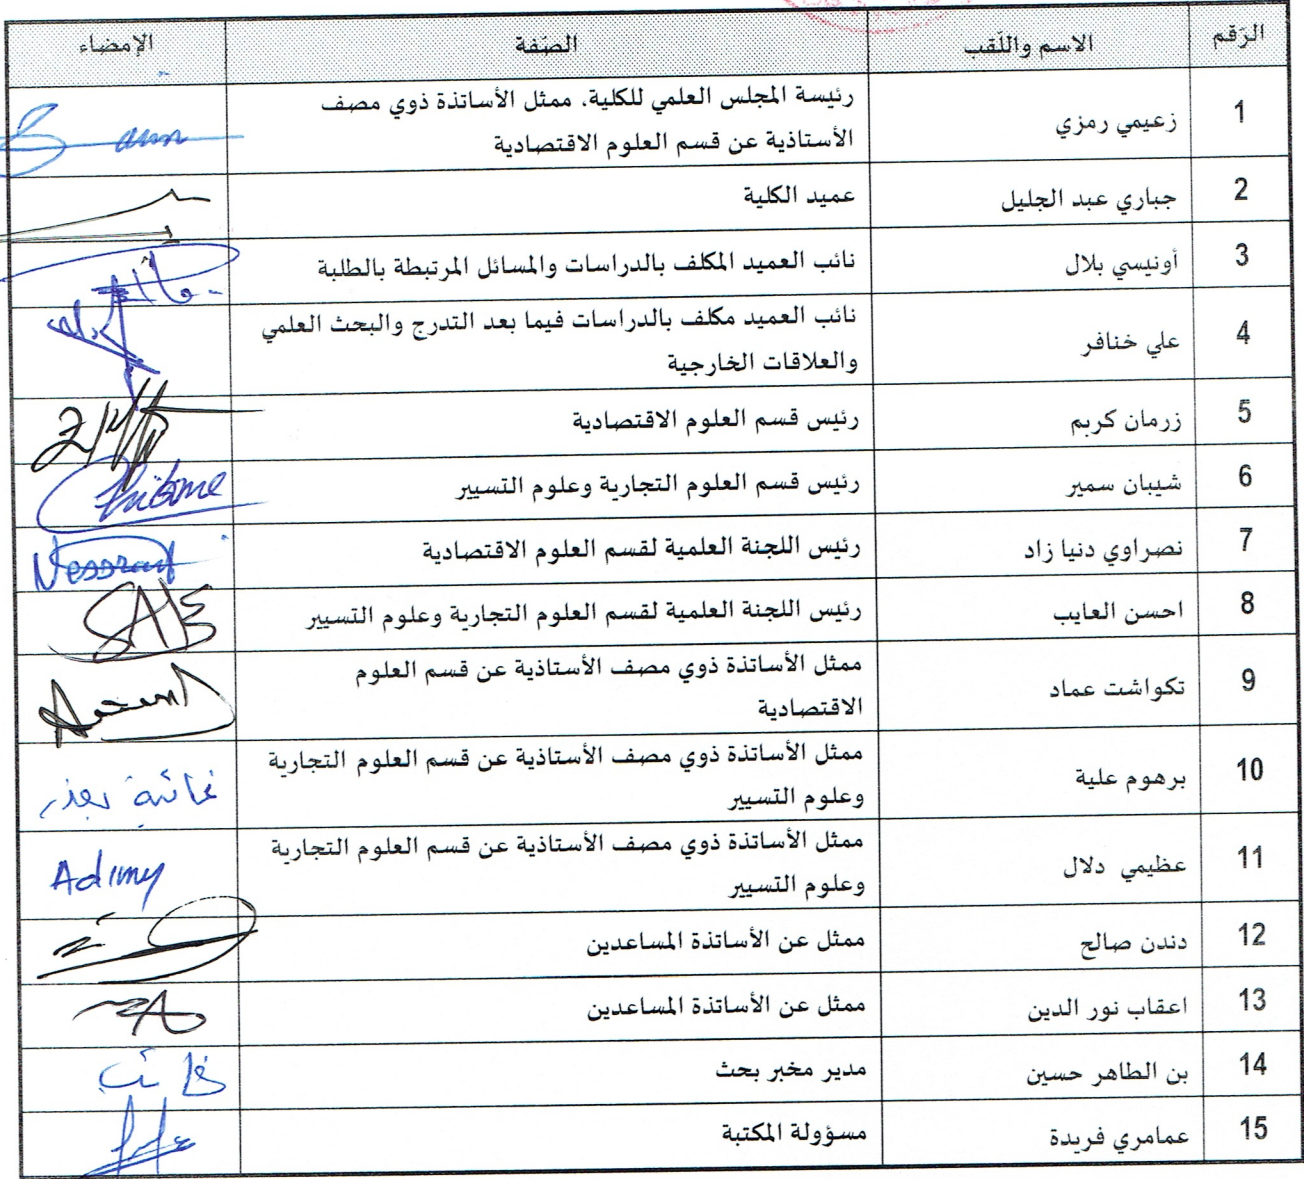 الرّقم الاسم واللّقب الصّفة الإمضاء
1 زعيمي رمزي رئيسة المجلس العلمي للكلية، ممثل الأساتذة ذوي مصف
الأستاذية عن قسم العلوم الاقتصادية
2 جباري عبد الجليل عميد الكلية
3 أونيسي بلال نائب العميد المكلف بالدراسات والمسائل المرتبطة بالطلبة
4 علي خنافر نائب العميد مكلف بالدراسات فيما بعد التدرج والبحث العلمي
والعلاقات الخارجية
5 زرمان كريم رئيس قسم العلوم الاقتصادية
6 شيبان سمير رئيس قسم العلوم التجارية وعلوم التسيير
7 نصراوي دنيا زاد رئيس اللجنة العلمية لقسم العلوم الاقتصادية
8 احسن العايب رئيس اللجنة العلمية لقسم العلوم التجارية وعلوم التسيير
9 تكواشت عماد ممثل الأساتذة ذوي مصف الأستاذية عن قسم العلوم
الاقتصادية
10 برهوم علية ممثل الأساتذة ذوي مصف الأستاذية عن قسم العلوم التجارية
وعلوم التسيير غائبة بعذر
11 عظيمي دلال ممثل الأساتذة ذوي مصف الأستاذية عن قسم العلوم التجارية
وعلوم التسيير Adimy
12 دندن صالح ممثل عن الأساتذة المساعدين
13 اعقاب نور الدين ممثل عن الأساتذة المساعدين
14 بن الطاهر حسين مدير مخبر بحث غائب
15 عمامري فريدة مسؤولة المكتبة